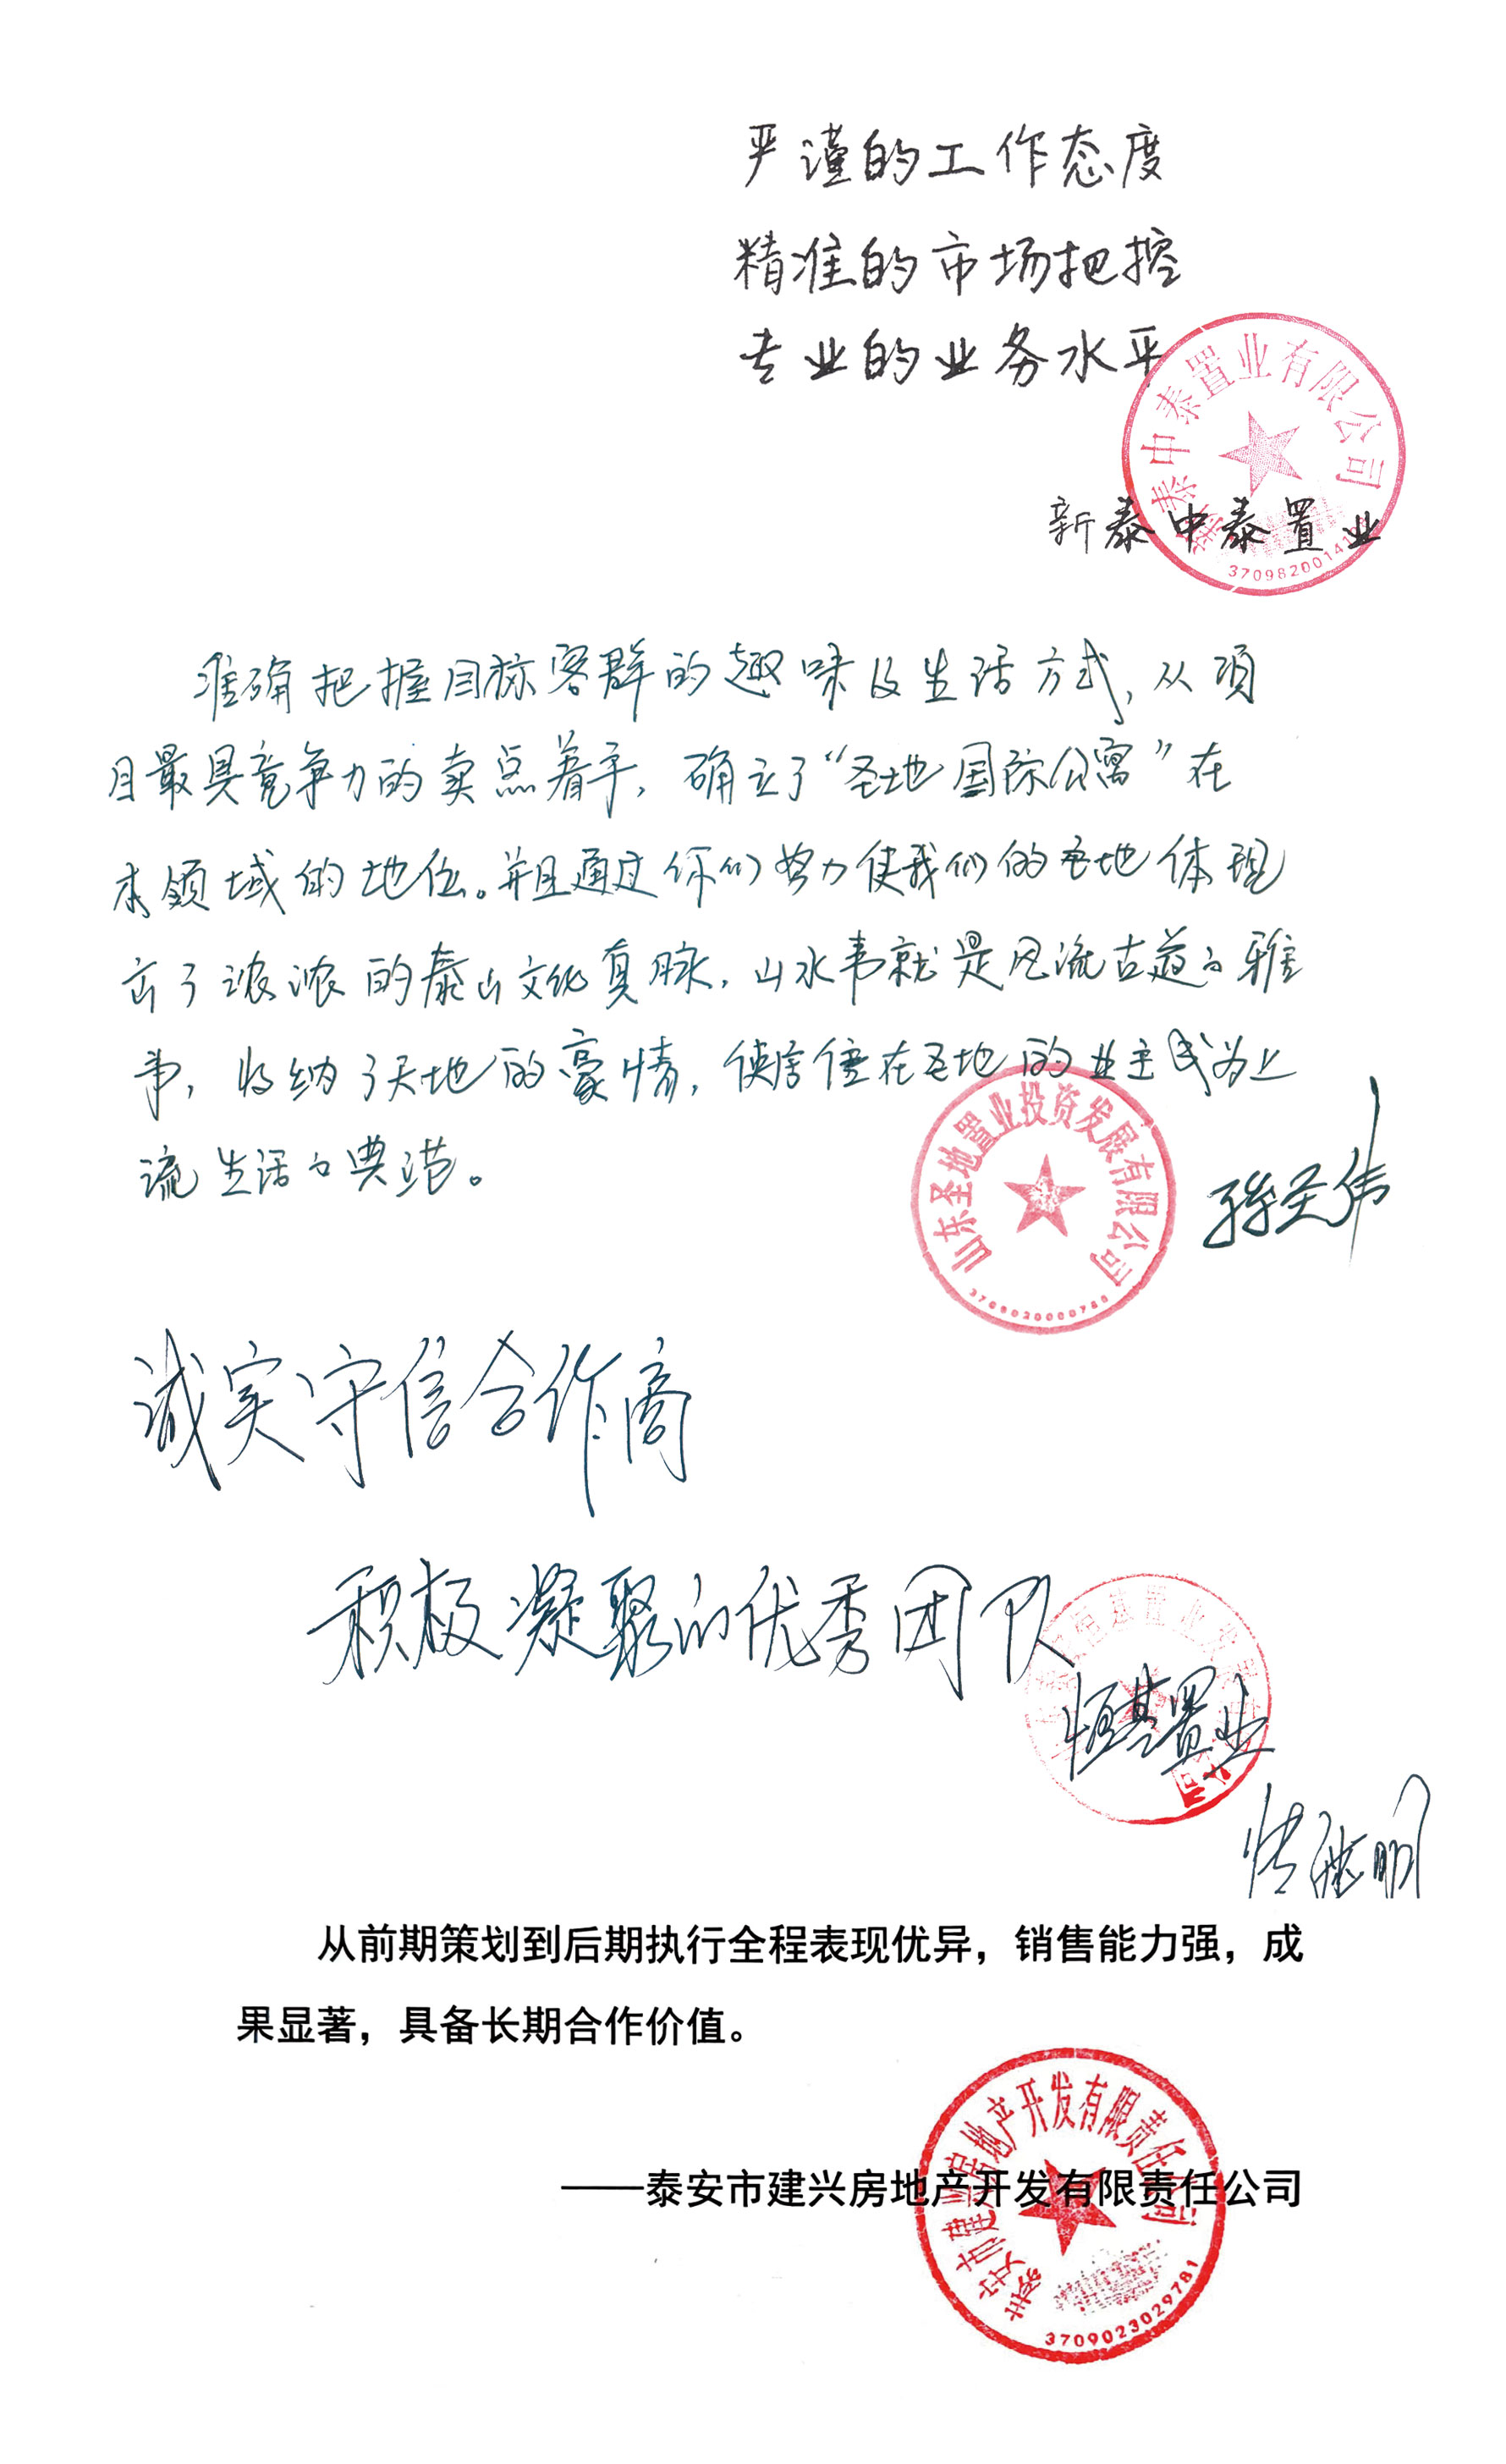 严谨的工作态度
精准的市场把控
专业的业务水平
新泰中泰置业有限公司
新泰中泰置业
准确把握目标客群的趣味及生活方式，从项
目最具竞争力的卖点着手，确立了“圣地国际公寓”在
本领域的地位。并且通过你们努力使我们的圣地体现
出了浓浓的泰山文化真脉，山水事就是风流古道的雅
事，收纳了天地的豪情，使居住在圣地的业主成为上
流生活的典范。
山东圣地置业投资发展有限公司
孙圣伟
诚实守信合作商
积极凝聚的优秀团队
恒基置业
从前期策划到后期执行全程表现优异，销售能力强，成
果显著，具备长期合作价值。
——泰安市建兴房地产开发有限责任公司
3709023029781